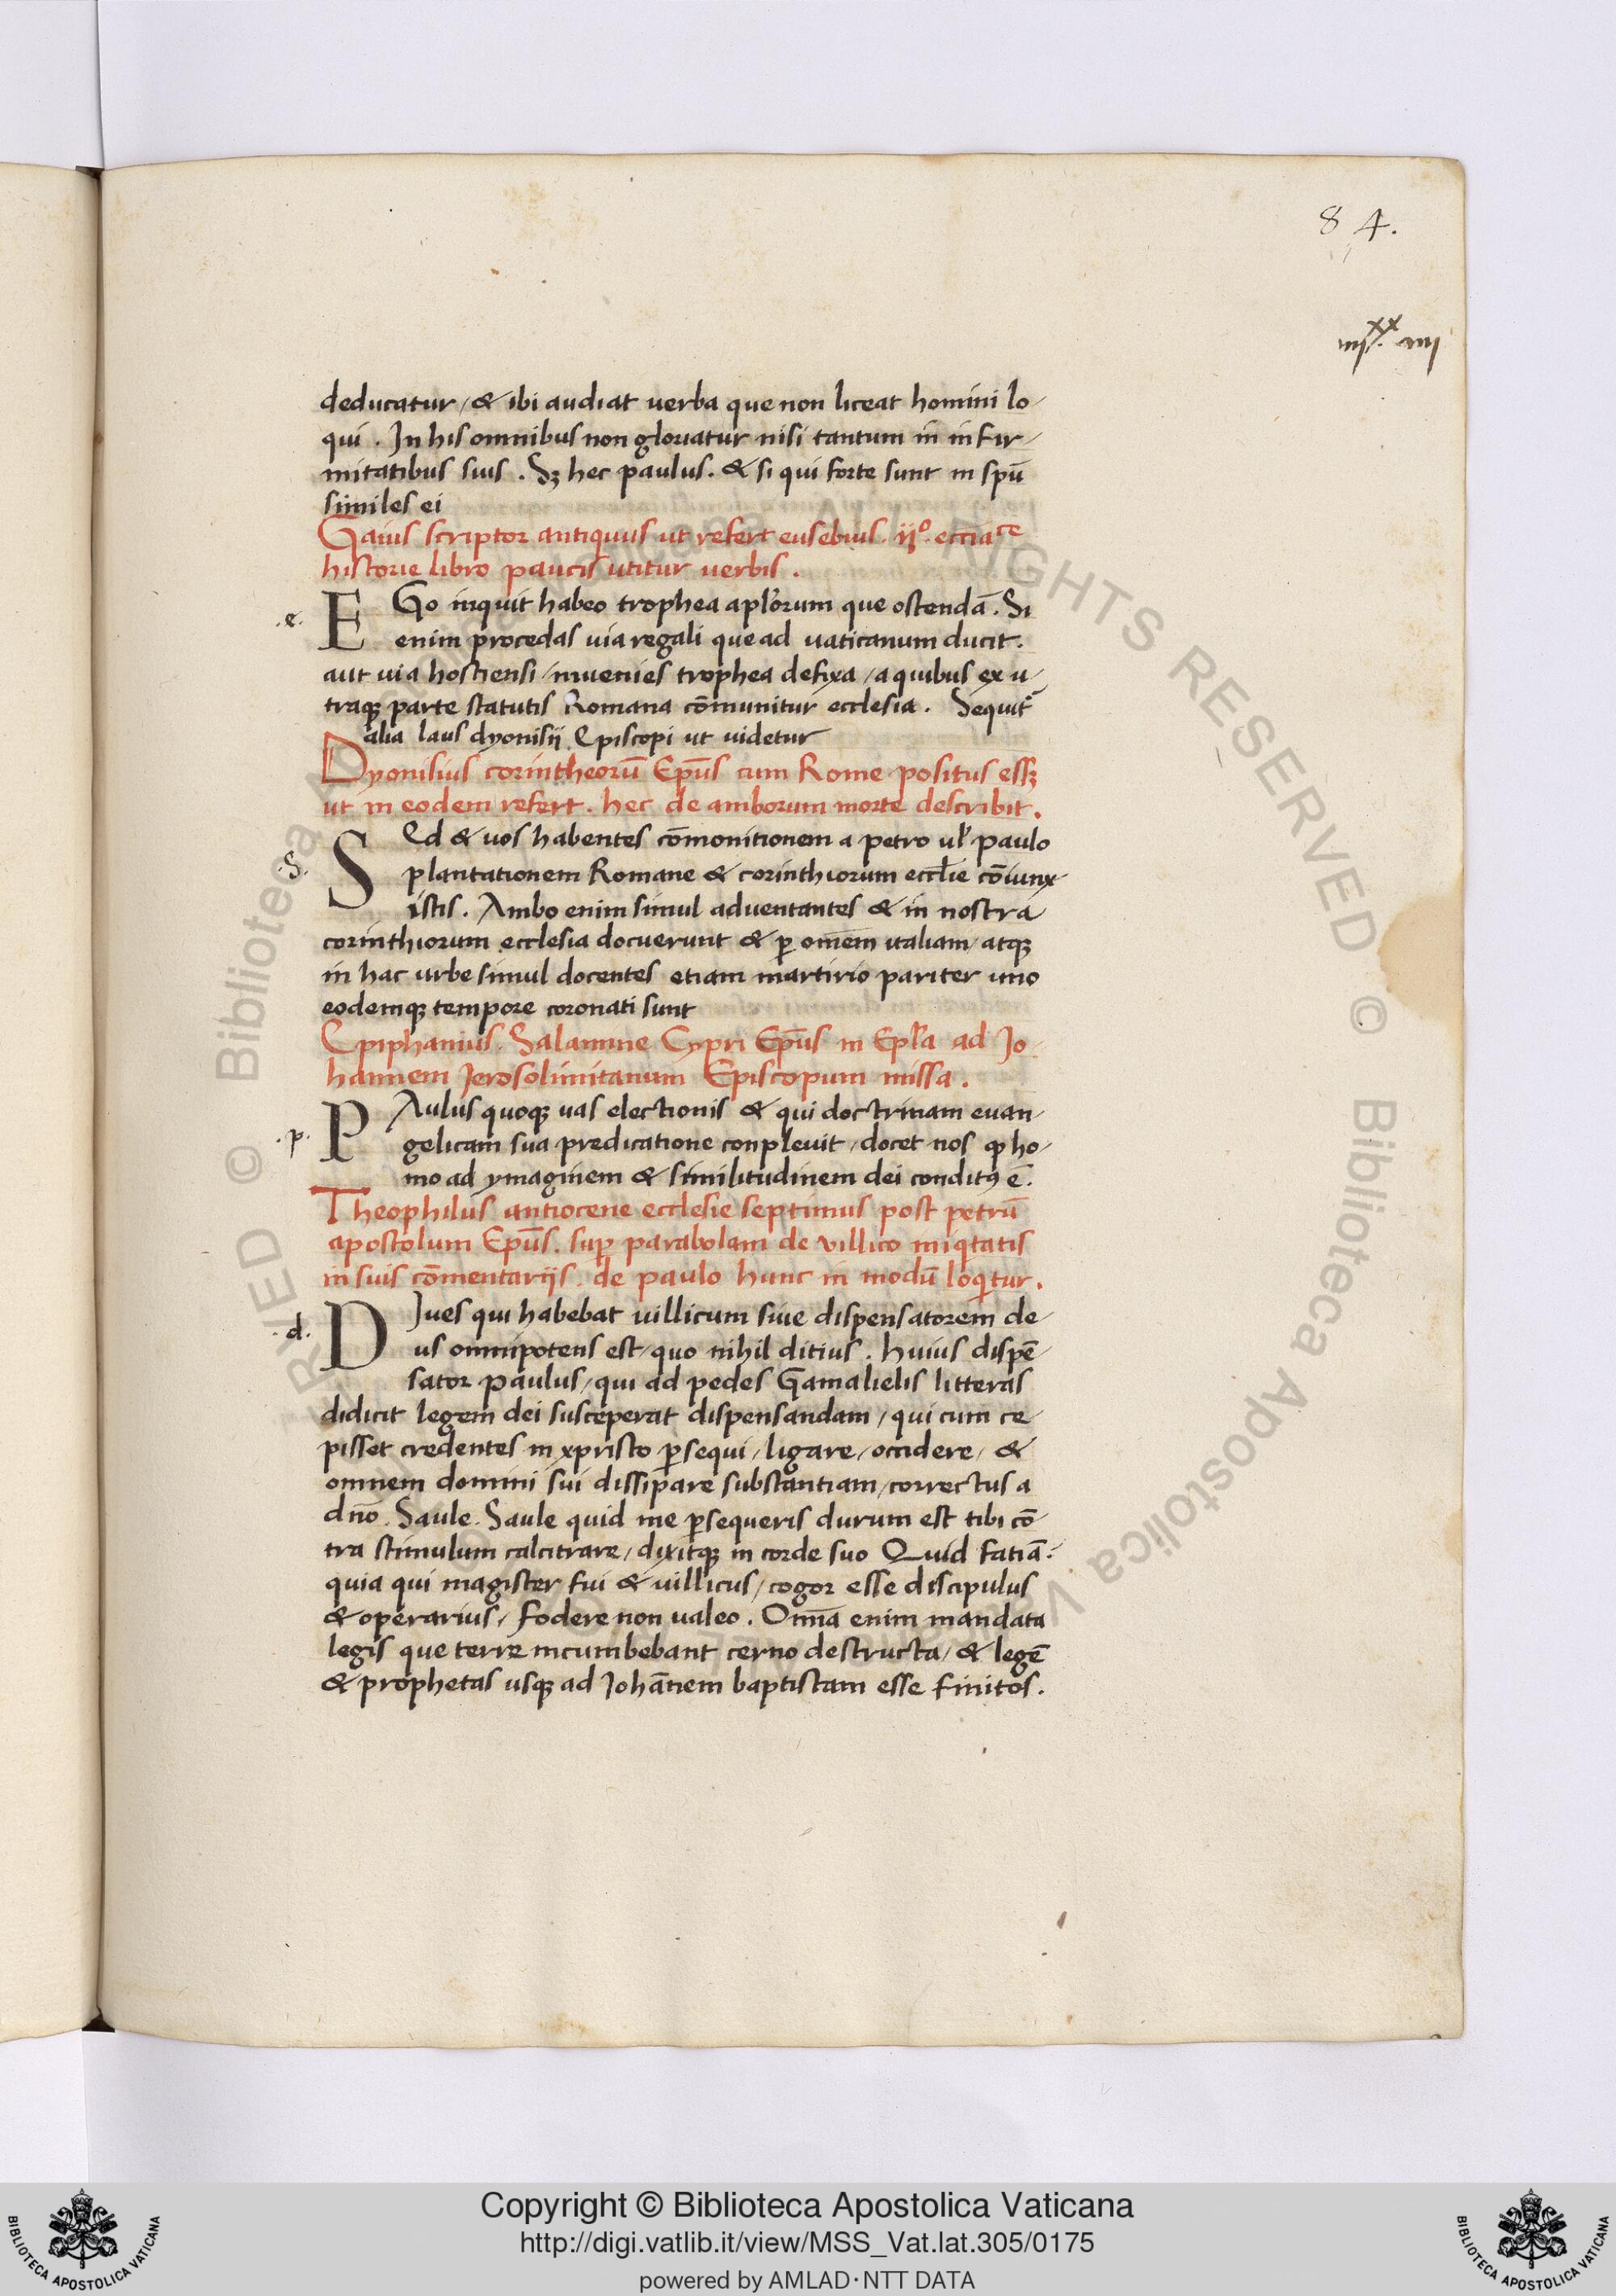 84.
iiij xx. iiij
deducatur / & ibi audiat uerba que non liceat homini lo-
qui . In his omnibus non gloriatur nisi tantum in infir-
mitatibus suis . Sꝫ hec paulus . & si qui forte sunt in spū
similes ei
Gaius scriptor antiquus ut refert eusebius . ijº. eccīaᶜᵉ
historie libro paucis utitur uerbis .
.e. EGo inquit habeo trophea apl'orum que ostendā . Si
enim procedas uia regali que ad uaticanum ducit .
aut uia hostiensi / inuenies trophea defixa / a quibus ex u-
traqꝫ parte statutis Romana cōmunitur ecclesia . Sequit~
alia laus dyonisij Episcopi ut uidetur
Dyonisius corintheorū Ep̄us cum Rome positus essꝫ
ut in eodem refert . hec de amborum morte describit .
.S. SEd & uos habentes cōmonitionem a petro ul' paulo
plantationem Romane & corinthiorum eccl'ie cōiunx-
istis . Ambo enim simul aduentantes & in nostra
corinthiorum ecclesia docuerunt & ꝑ omēm italiam / atqꝫ
in hac urbe simul docentes etiam martirio pariter uno
eodemqꝫ tempore coronati sunt
Epiphanius . Salamine Cypri Ep̄us in Epl'a ad Jo-
hannem Jerosolimitanum Episcopum missa .
.p. PAulus quoqꝫ uas electionis & qui doctrinam euan-
gelicam sua predicatione conpleuit / docet nos ꝙ ho-
mo ad ymaginem & similitudinem dei conditꝰ ē .
Theophilus antiocene ecclesie septimus post petrū
apostolum Ep̄us . suꝑ parabolam de villico iniqtatis
in suis cōmentarijs . de paulo hunc in modū loqtur .
.d. DJues qui habebat uillicum siue dispensatorem de-
us omnipotens est / quo nihil ditius . huius dispē-
sator paulus / qui ad pedes Gamalielis litteras
didicit legem dei susceperat dispensandam / qui cum ce-
pisset credentes in xpristo ꝑsequi / ligare / occidere / &
omnem domini sui dissipare substantiam / correctus a
dn̄o . Saule . Saule quid me ꝑsequeris durum est tibi cō-
tra stimulum calcitrare / dixitqꝫ in corde suo Quid fatiā :
quia qui magister fui & uillicus / cogor esse discipulus
& operarius / fodere non ualeo . Om̄a enim mandata
legis que terre incumbebant cerno destructa / & legē
& prophetas usqꝫ ad Johānem baptistam esse finitos .
© Biblioteca Apostolica Vaticana
RIGHTS RESERVED
© Biblioteca Apostolica Vaticana
Copyright © Biblioteca Apostolica Vaticana
http://digi.vatlib.it/view/MSS_Vat.lat.305/0175
powered by AMLAD·NTT DATA
BIBLIOTECA APOSTOLICA VATICANA
BIBLIOTECA APOSTOLICA VATICANA